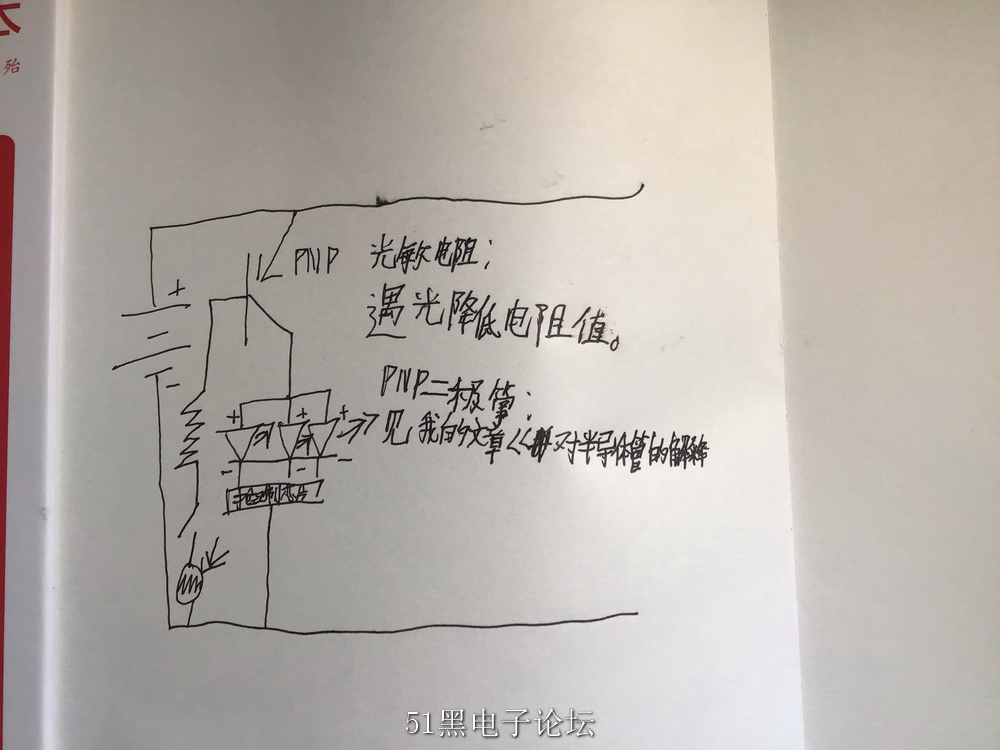 殆
+
PNP 光敏电阻；
遇光降低电阻值。
-
PNP二极管：
+ +
见我的文章《对半导体管的解释
- - -
控制芯片
51黑电子论坛